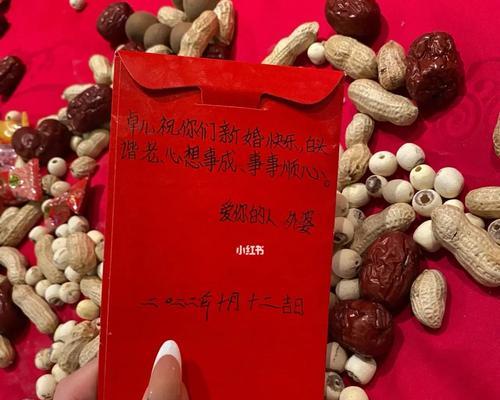 卓儿祝你们新婚快乐,白头
谐老、心想事成、事事顺心。
爱你的人 外婆
小红书
二〇二二年十月十二吉日